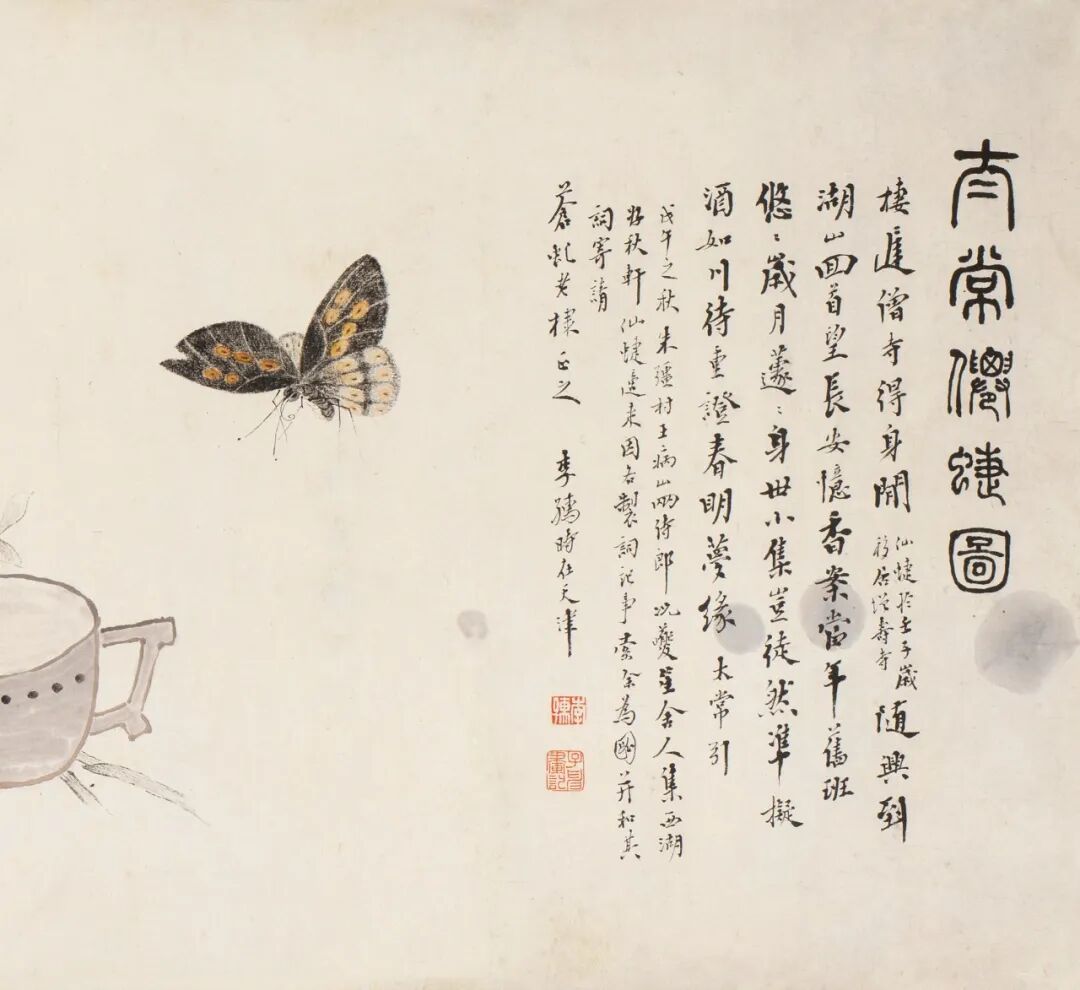 太常僊蜨圖
棲遲僧寺得身閒
仙蜨於壬子歲
移居增壽寺
隨興到
湖山回首望長安憶香案當年舊班
悠〻歲月蘧〻身世小集豈徒然準擬
酒如川待重證春明夢緣 太常引
戊午之秋朱彊村王病山兩侍郎況夔笙舍人集西湖
秋軒仙蜨遠來因各製詞記事索余為圖并和其
詞寄請
蒼虬老棣正之 李孺時在天津